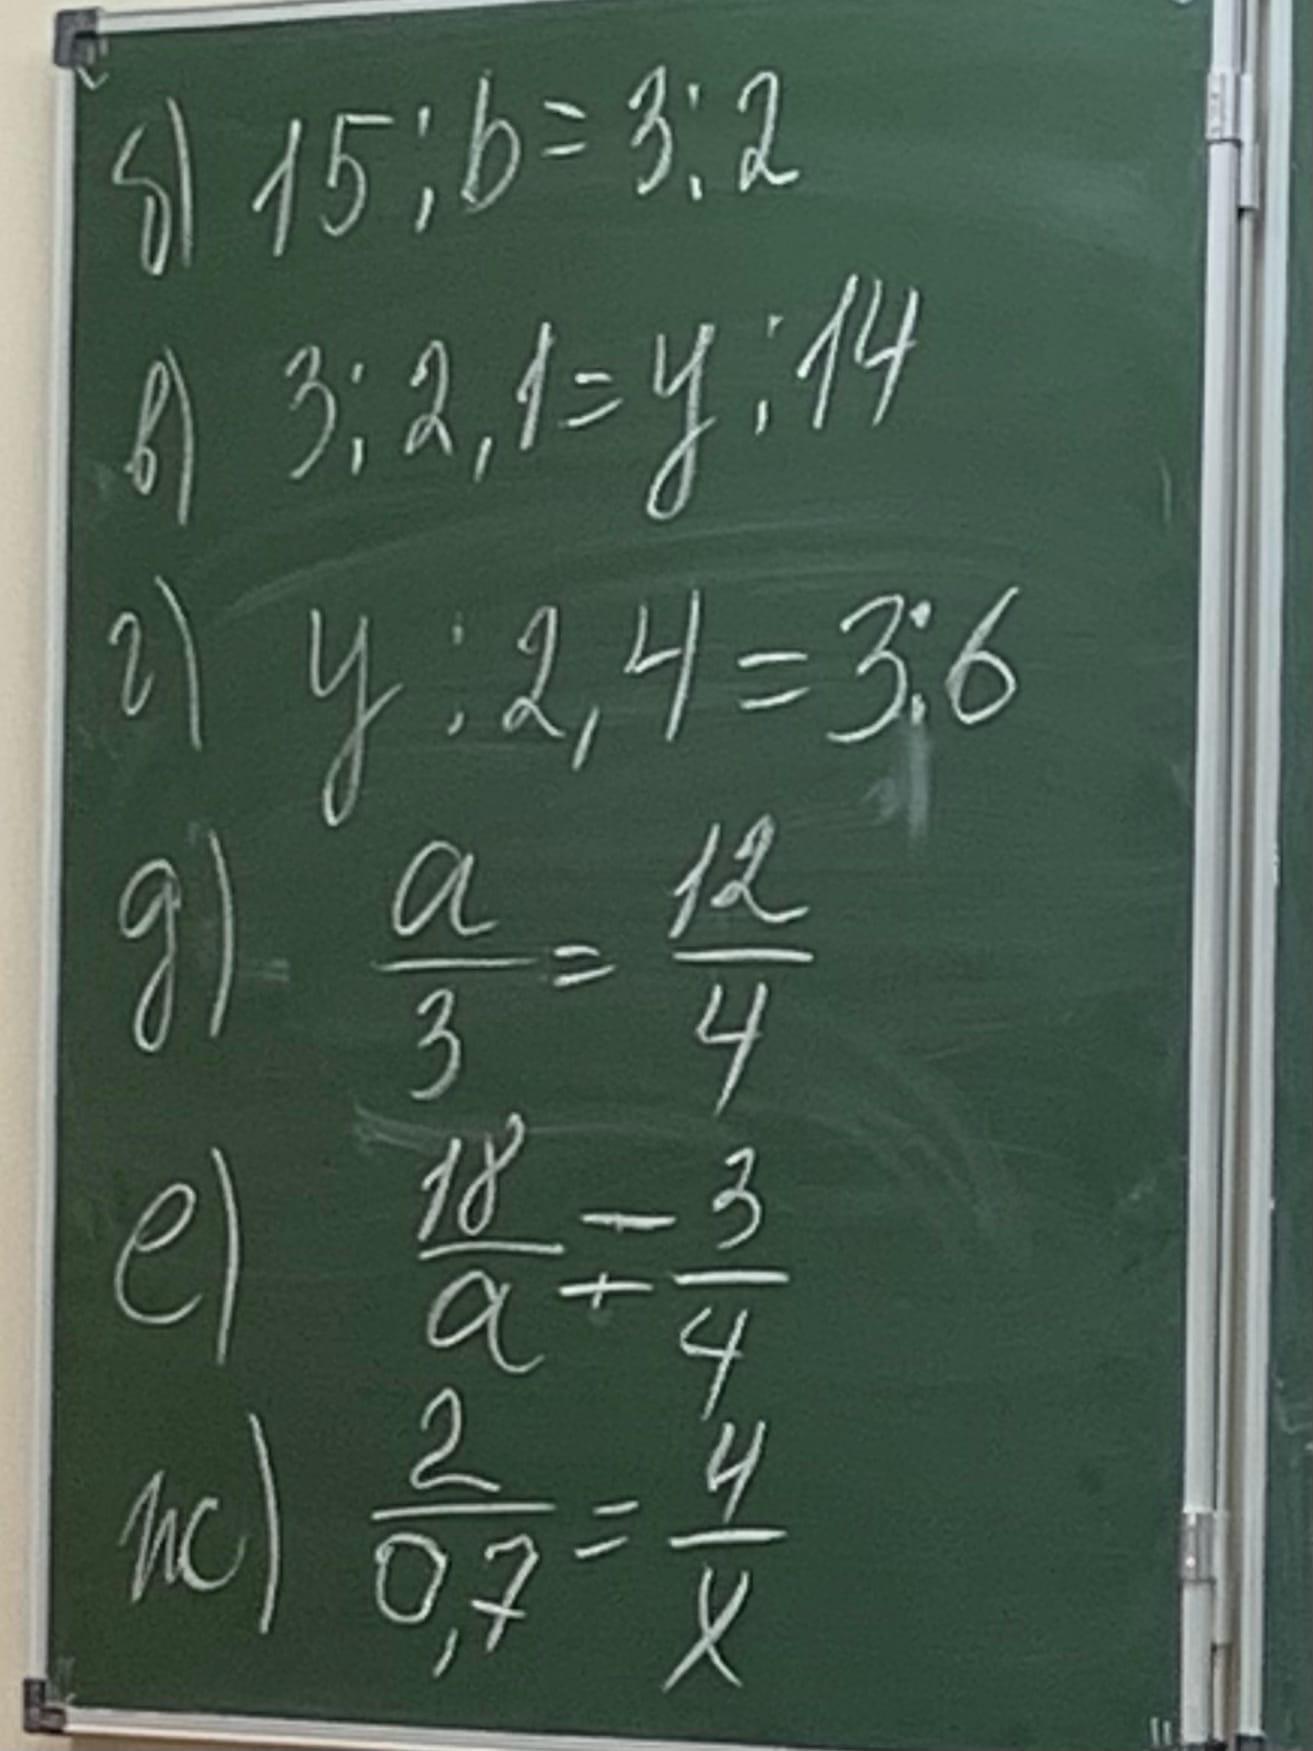 б) 15 : b = 3 : 2
в) 3 : 2,1 = y : 14
г) y : 2,4 = 3 : 6
д) a/3 = 12/4
е) 18/a = 3/4
ж) 2/0,7 = 4/x